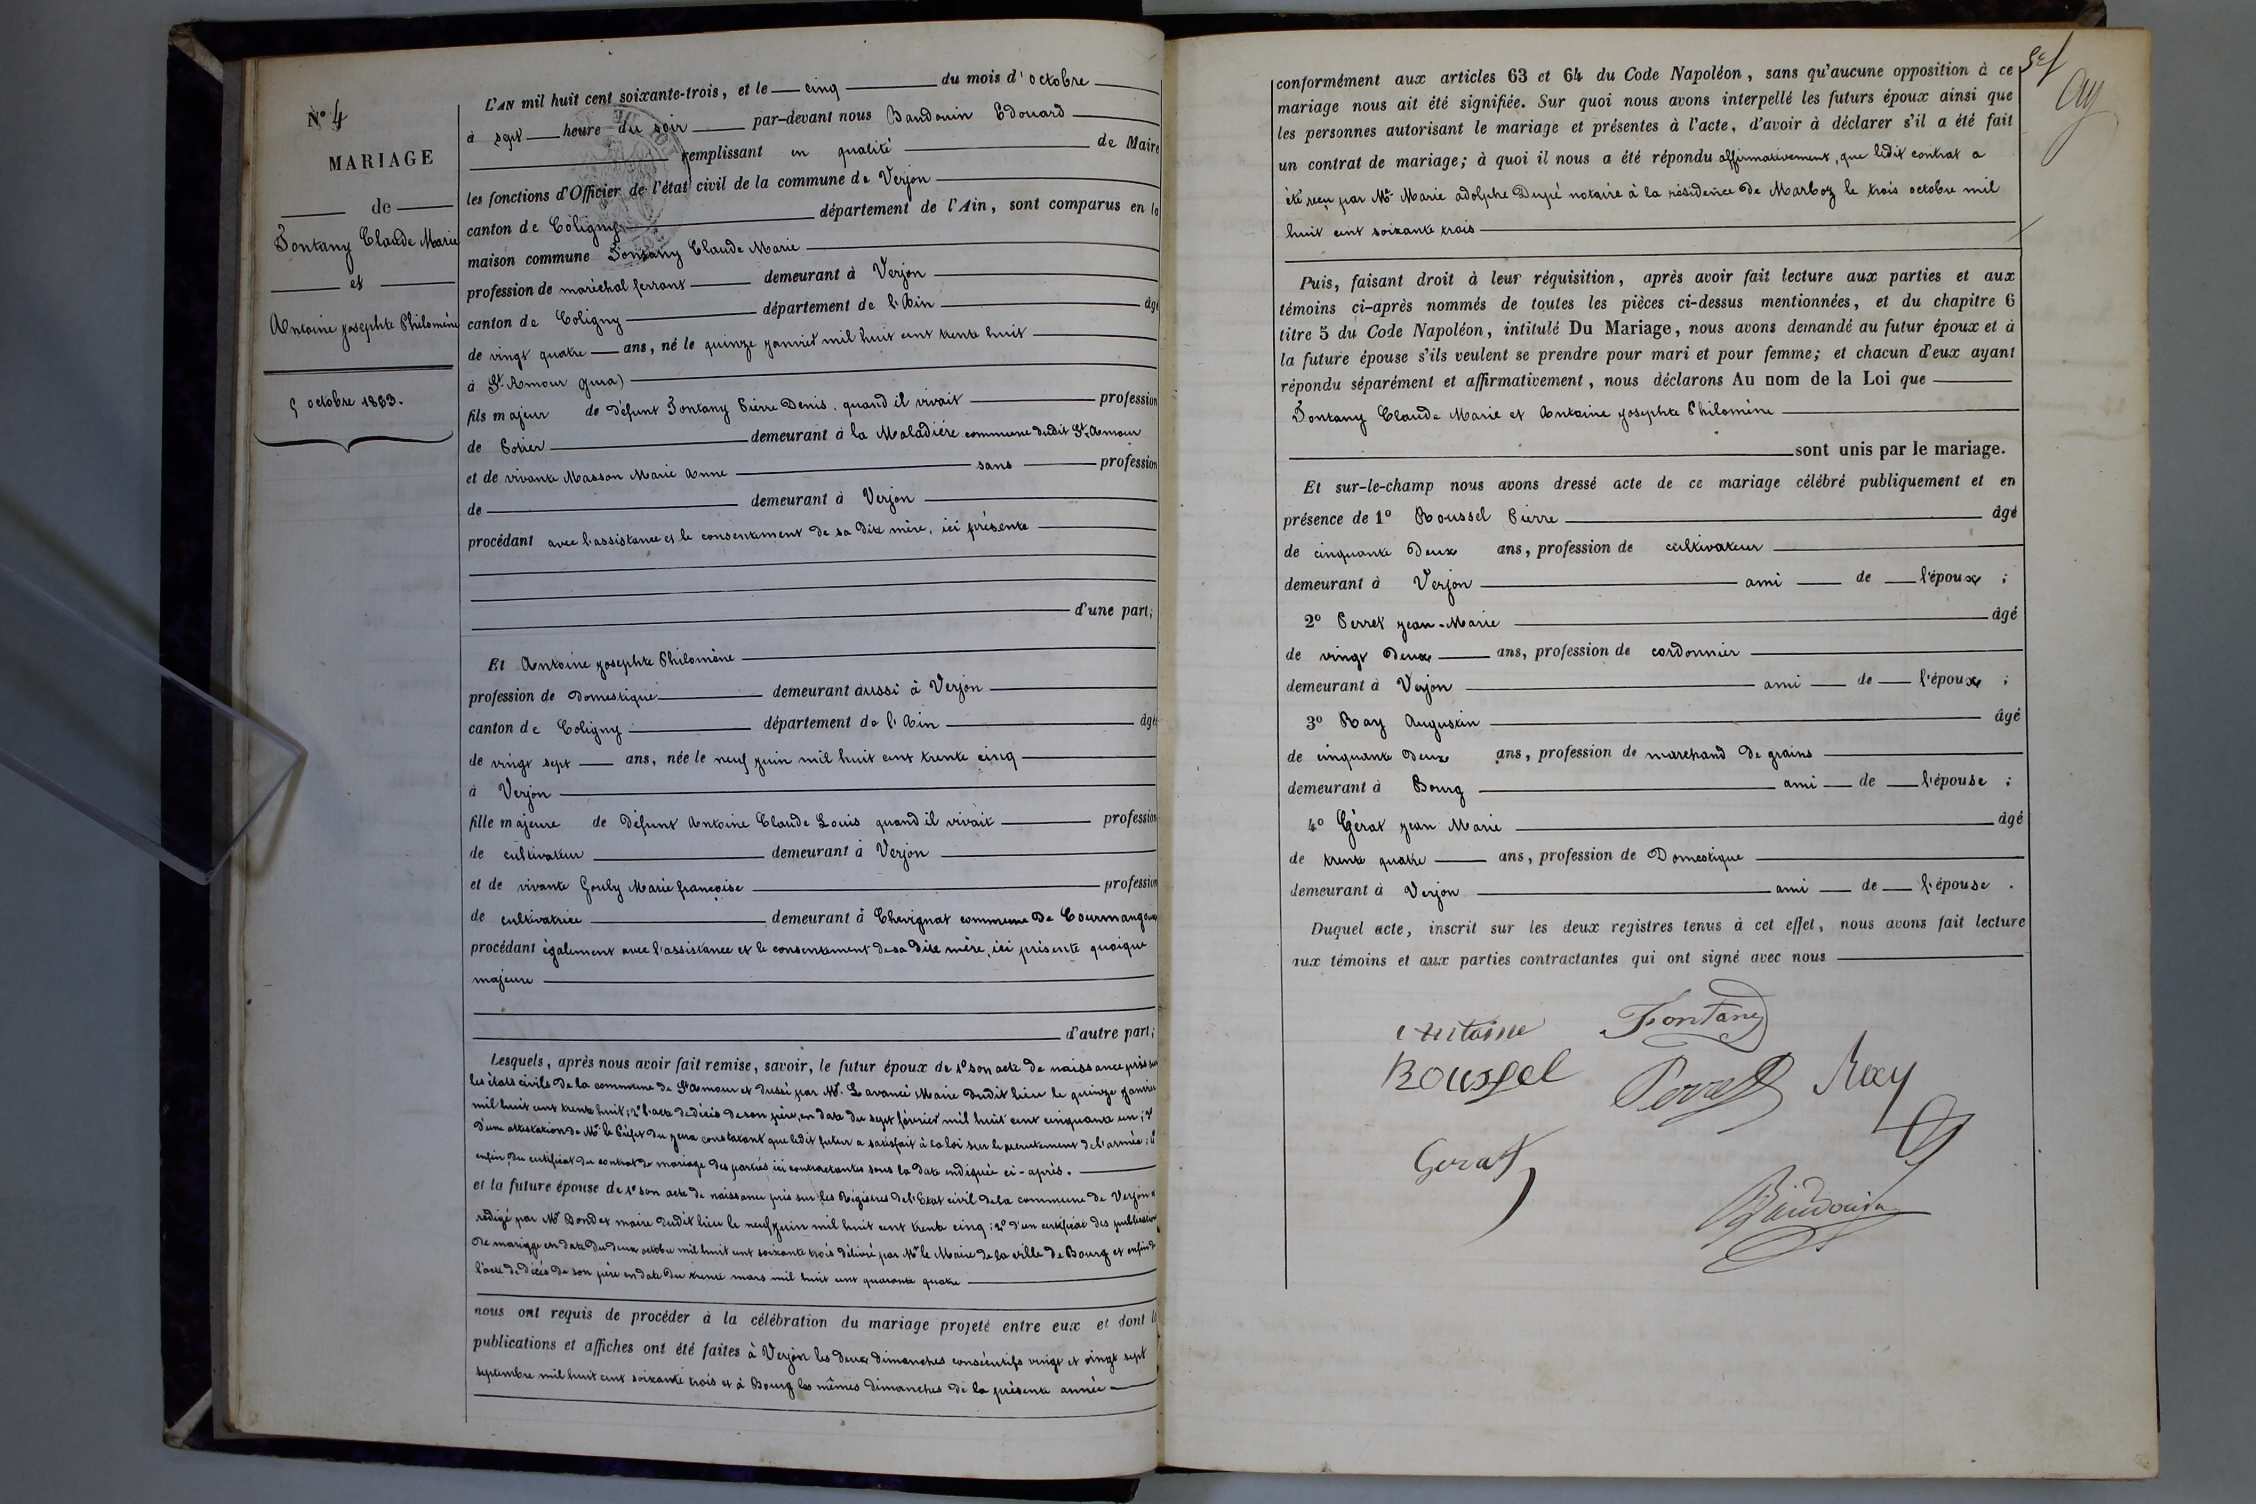 N° 4
MARIAGE
de
Fontany Claude Marie
et
Antoine josephte Philomène
5 octobre 1863.
L'AN mil huit cent soixante-trois, et le cinq du mois d'octobre
à sept heure du soir par-devant nous Baudouin Edouard
remplissant en qualité de Maire
les fonctions d'Officier de l'état civil de la commune de Verjon
canton de Coligny département de l'Ain, sont comparus en la
maison commune Fontany Claude Marie
profession de maréchal ferrant demeurant à Verjon
canton de Coligny département de l'Ain âgé
de vingt quatre ans, né le quinze janvier mil huit cent trente huit
à St. Amour jura)
fils majeur de défunt Fontany Pierre Denis, quand il vivait profession
de Potier demeurant à la Maladière commune dudit St. Amour
et de vivante Masson Marie Anne sans profession
de demeurant à Verjon
procédant avec l'assistance et le consentement de sa dite mère, ici présente
d'une part;
Et Antoine josephte Philomène
profession de Domestique demeurant aussi à Verjon
canton de Coligny département de l'Ain âgée
de vingt sept ans, née le neuf juin mil huit cent trente cinq
à Verjon
fille majeure de défunt Antoine Claude Louis quand il vivait profession
de cultivateur demeurant à Verjon
et de vivante Gouly Marie françoise profession
de cultivatrice demeurant à Chevignat commune de Courmangoux
procédant également avec l'assistance et le consentement de sa dite mère, ici présente quoique
majeure
d'autre part;
Lesquels, après nous avoir fait remise, savoir, le futur époux de 1° son acte de naissance pris sur
les états civils de la commune de St. Amour et dressé par Mr. Lavancé Maire dudit lieu le quinze janvier
mil huit cent trente huit; 2° l'acte de décès de son père, en date du sept février mil huit cent cinquante un; 3°
d'une attestation de Mr. le Préfet du jura constatant que ledit futur a satisfait à la loi sur le recrutement de l'armée; 4°
enfin, du certificat du contrat de mariage des parties ici contractantes sous la date indiquée ci-après.
et la future épouse de 1° son acte de naissance pris sur les Régistres de l'Etat civil de la commune de Verjon et
rédigé par Mr Bondet maire dudit lieu le neuf juin mil huit cent trente cinq; 2° d'un certificat des publications
de mariage en date du deux octobre mil huit cent soixante trois délivré par Mr le Maire de la ville de Bourg et enfin de
l'acte de décès de son père en date du trente mars mil huit cent quarante quatre
nous ont requis de procéder à la célébration du mariage projeté entre eux et dont les
publications et affiches ont été faites à Verjon les deux dimanches consécutifs vingt et vingt sept
septembre mil huit cent soixante trois et à Bourg les mêmes dimanches de la présente année
conformément aux articles 63 et 64 du Code Napoléon, sans qu'aucune opposition à ce
mariage nous ait été signifiée. Sur quoi nous avons interpellé les futurs époux ainsi que
les personnes autorisant le mariage et présentes à l'acte, d'avoir à déclarer s'il a été fait
un contrat de mariage; à quoi il nous a été répondu affirmativement, que ledit contrat a
été reçu par Me Marie adolphe Dupé notaire à la résidence de Marboz le trois octobre mil
huit cent soixante trois
Puis, faisant droit à leur réquisition, après avoir fait lecture aux parties et aux
témoins ci-après nommés de toutes les pièces ci-dessus mentionnées, et du chapitre 6
titre 5 du Code Napoléon, intitulé Du Mariage, nous avons demandé au futur époux et à
la future épouse s'ils veulent se prendre pour mari et pour femme; et chacun d'eux ayant
répondu séparément et affirmativement, nous déclarons Au nom de la Loi que
Fontany Claude Marie et Antoine josephte Philomène
sont unis par le mariage.
Et sur-le-champ nous avons dressé acte de ce mariage célébré publiquement et en
présence de 1° Roussel Pierre âgé
de cinquante deux ans, profession de cultivateur
demeurant à Verjon ami de l'époux ;
2° Perret jean-Marie âgé
de vingt deux ans, profession de cordonnier
demeurant à Verjon ami de l'époux ;
3° Ray Augustin âgé
de cinquante deux ans, profession de marchand de grains
demeurant à Bourg ami de l'épouse ;
4° Gérat jean Marie âgé
de trente quatre ans, profession de Domestique
demeurant à Verjon ami de l'épouse .
Duquel acte, inscrit sur les deux registres tenus à cet effet, nous avons fait lecture
aux témoins et aux parties contractantes qui ont signé avec nous
Antoine Fontany
Roussel Perret Ray
Gerat
Baudouin